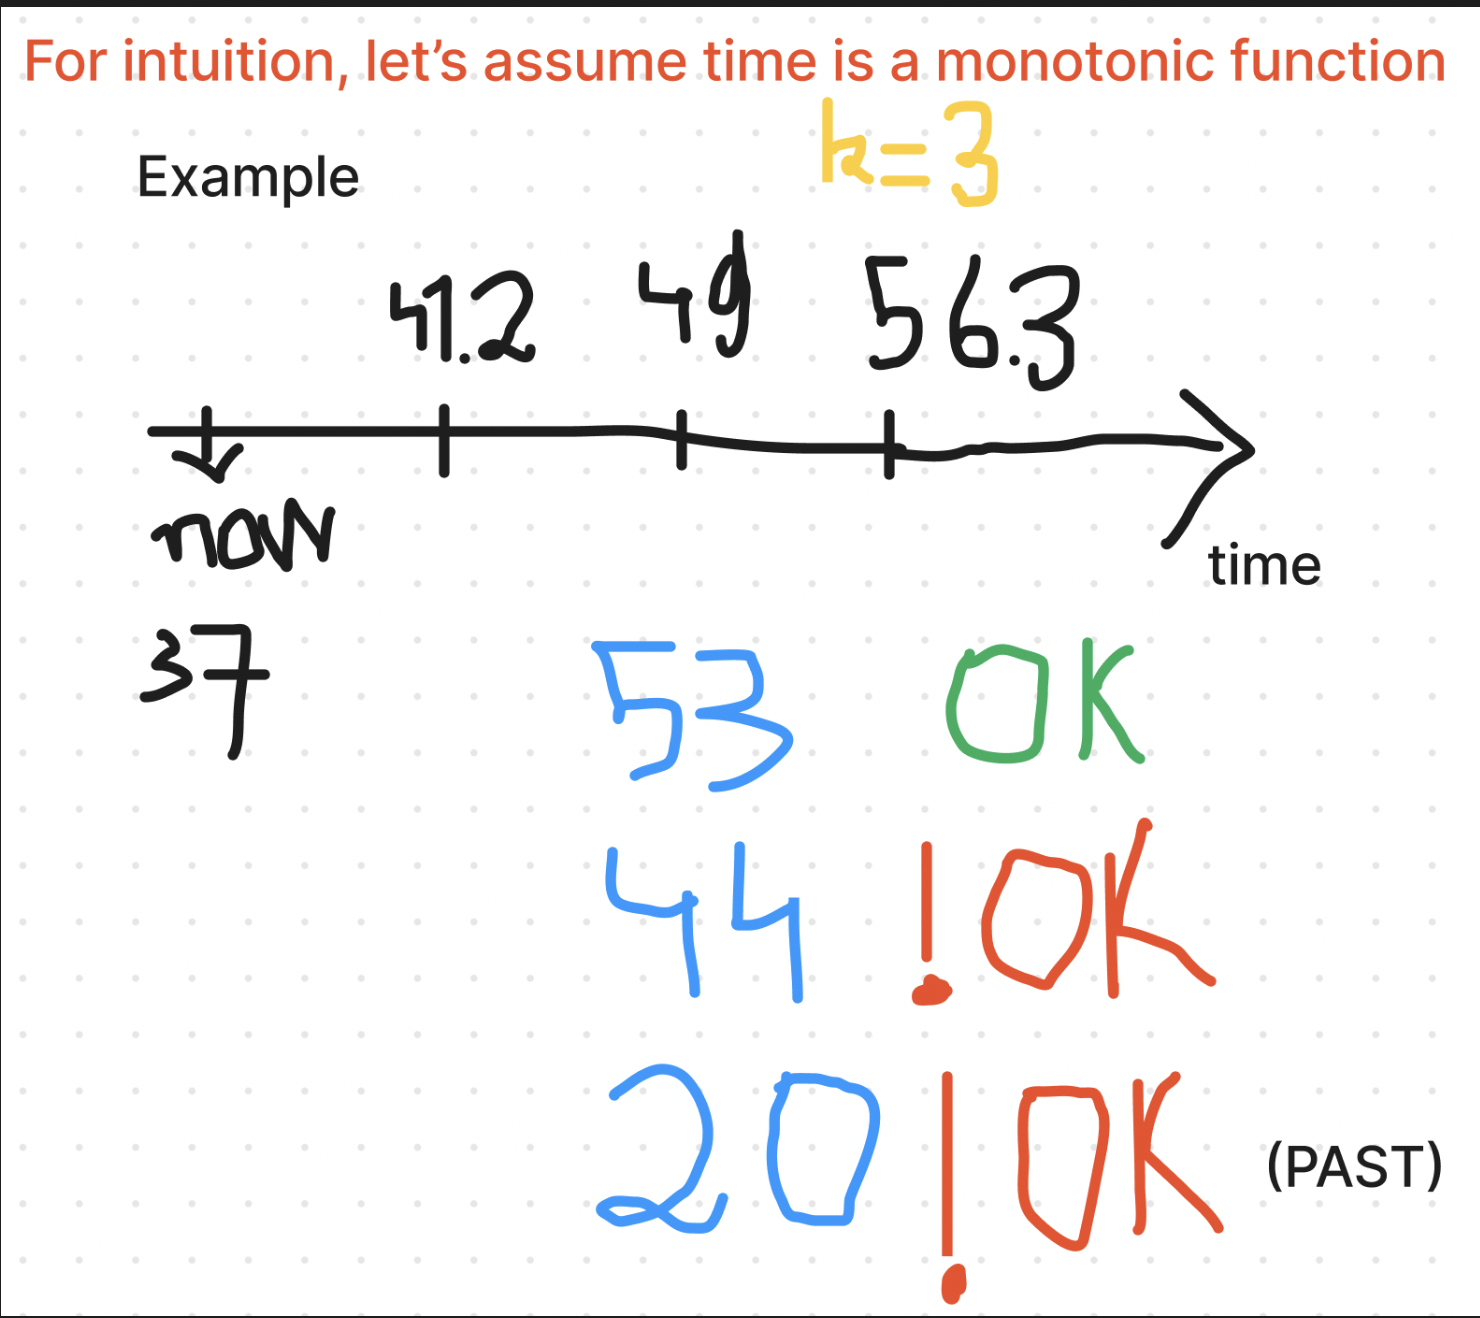 For intuition, let's assume time is a monotonic function
k=3
Example
41.2 49 56.3
now
time
37
53 OK
44 !OK
20 !OK (PAST)